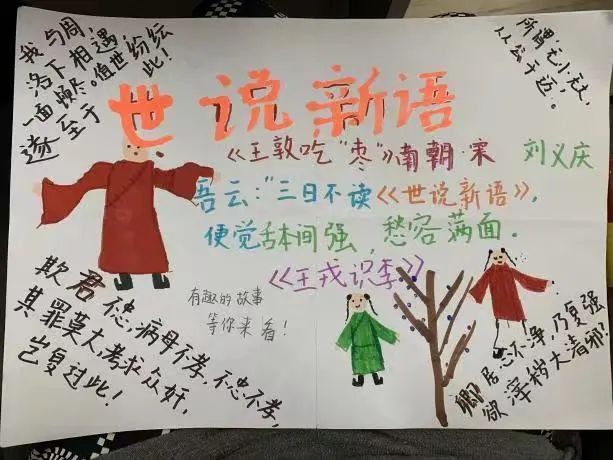 我与周,
洛下相遇,
一面顿尽。值世纷纭
遂至于此!
所谓“无小无大,
从公于迈”。
世说新语
《王敦吃“枣”》南朝·宋 刘义庆
吾云:“三日不读《世说新语》,
便觉舌本间强,愁容满面。
《王戎识李》
有趣的故事
等你来看!
欺君不忠,病母不孝,不忠不孝,
其罪莫大,考求众奸,
岂复过此!
卿居心不净,乃复强
欲滓秽大清邪!